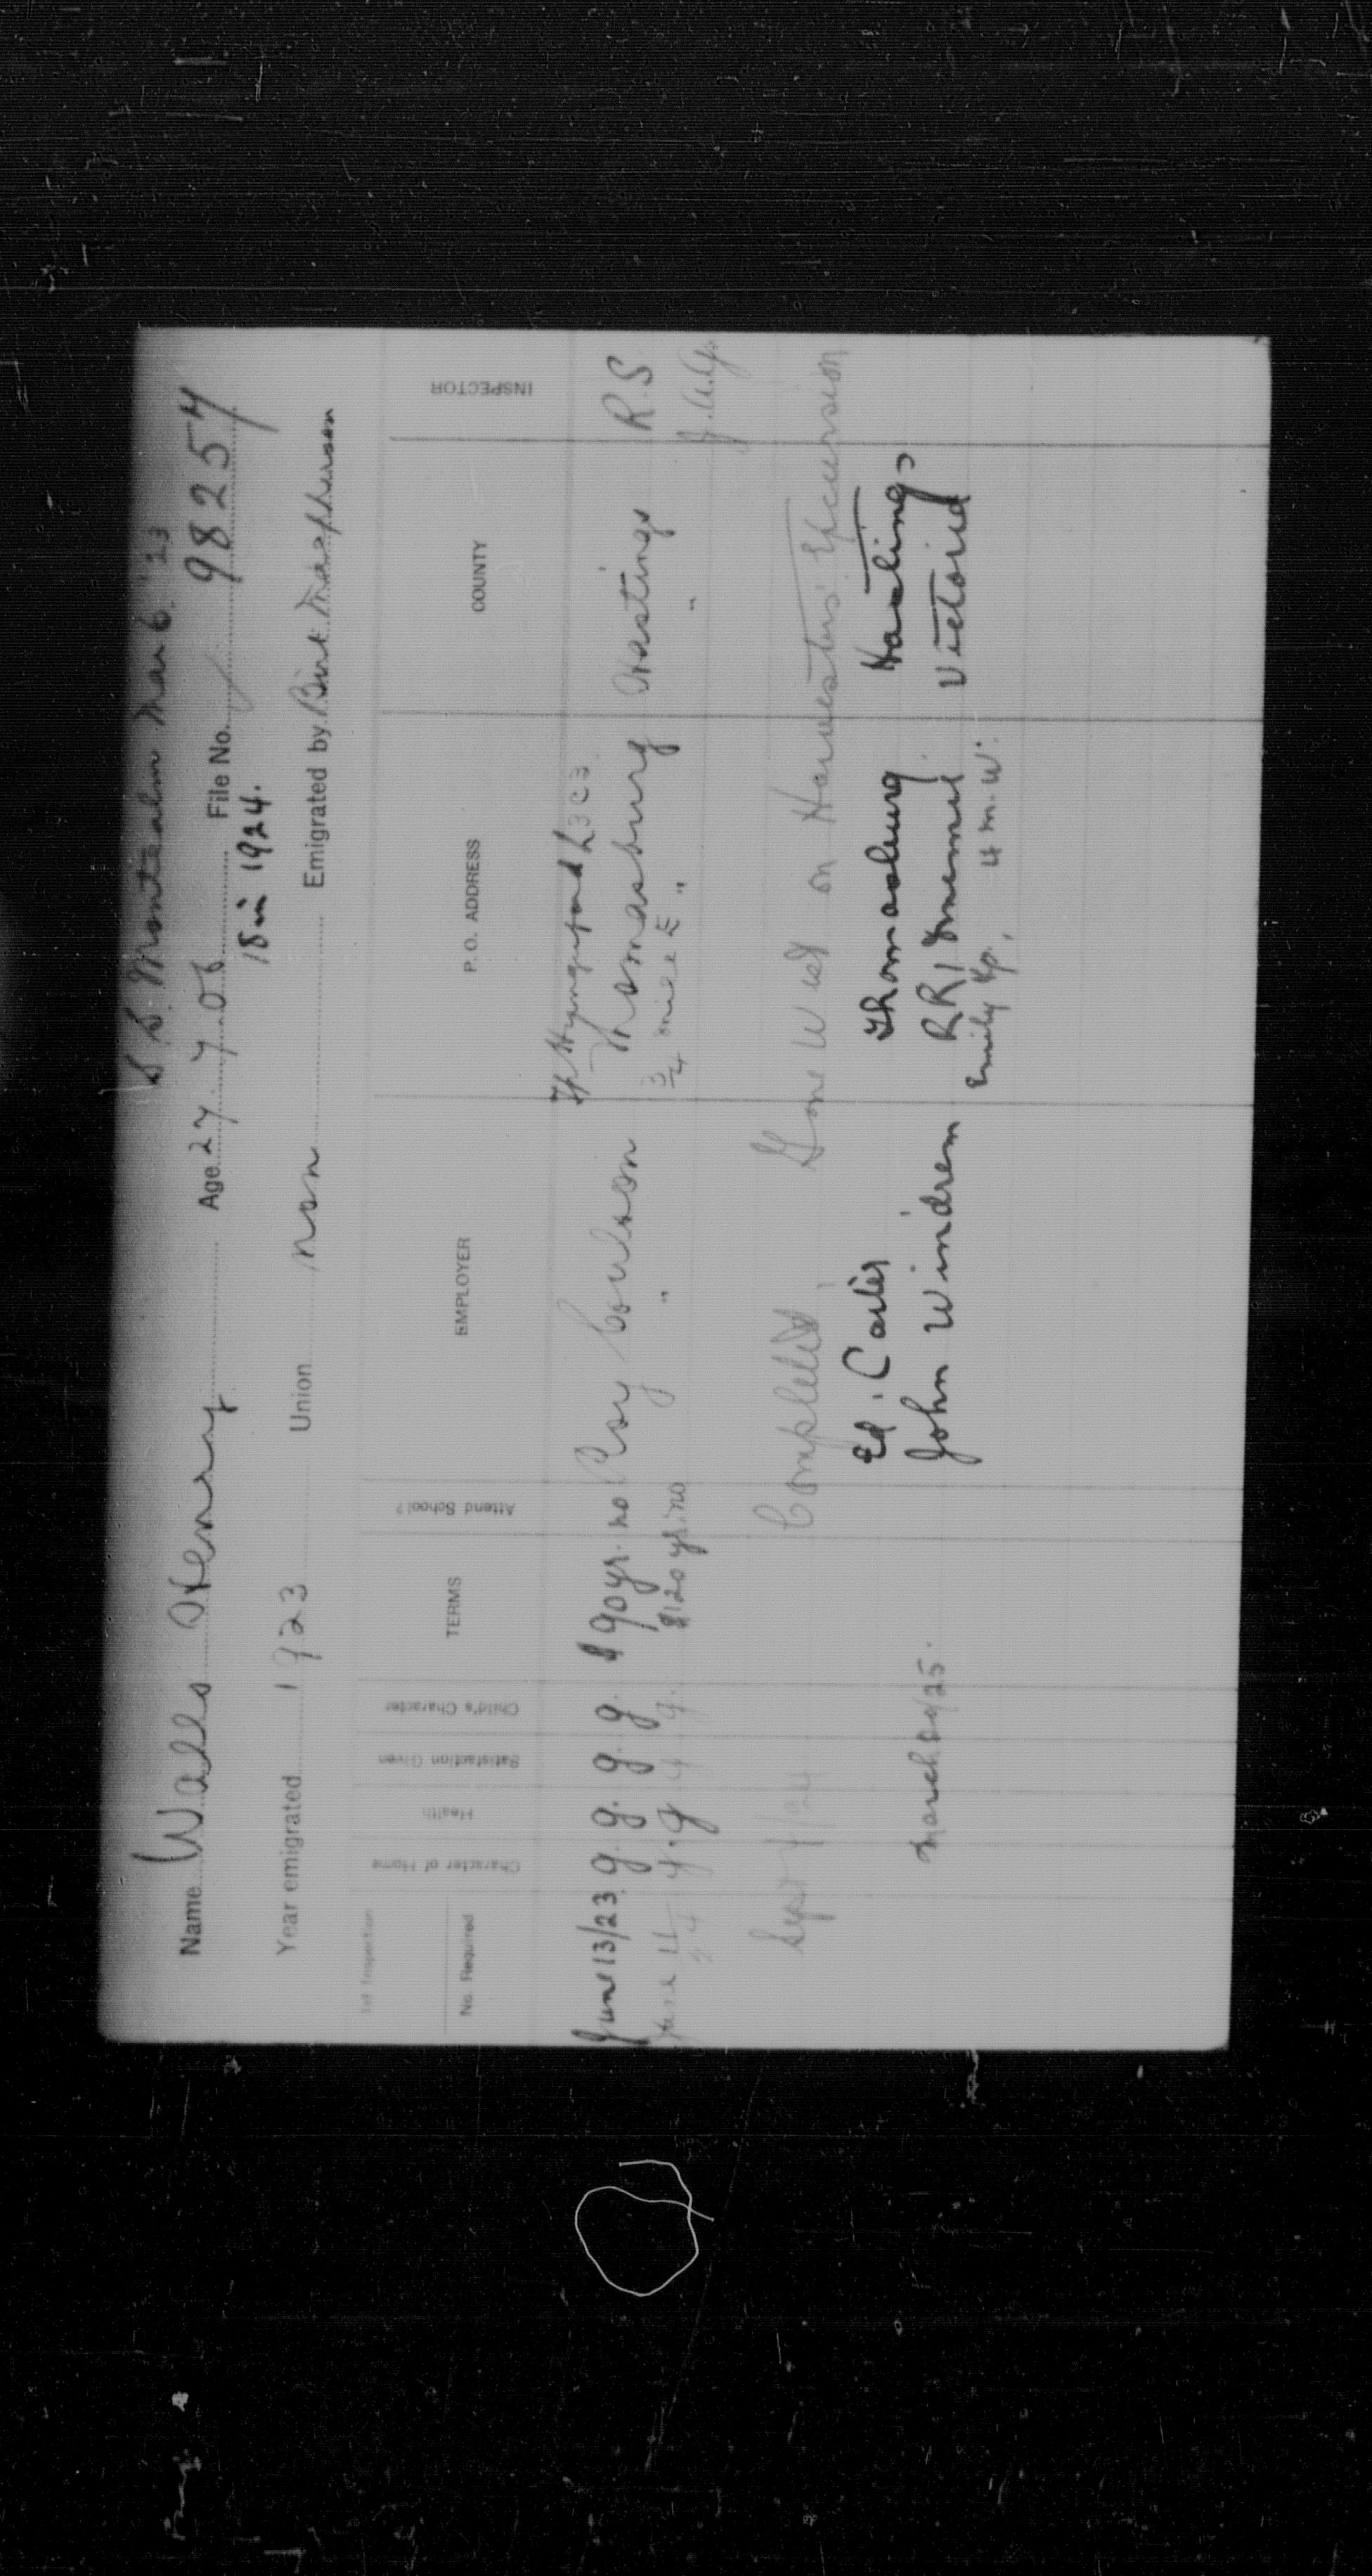 S.S. Montcalm Mar 6 '23
Name Walls Henry Age 27 7 06 File No. 98257
18 in 1924.
Year emigrated 1923 Union non Emigrated by Birt Macpherson
1st Inspection
No. Required Character of Home Health Satisfaction Given Child's Character TERMS Attend School? EMPLOYER P. O. ADDRESS COUNTY INSPECTOR
Tp Hungerford L3 C3
June 13/23 g. g. g. g. $90 yr. no Roy Coulson Thomasburg Hastings R.S
June 4 g. g g g. $120 yr. no " 3/4 mile E " " J.A.G.
24
Sept 4/24 Completed, Gone West on Harvesters' Excursion
Ed. Carter Thomasburg Hastings
March 29/25. John Windrem RR1 Omemee Victoria
Emily Tp, 4 m. W.